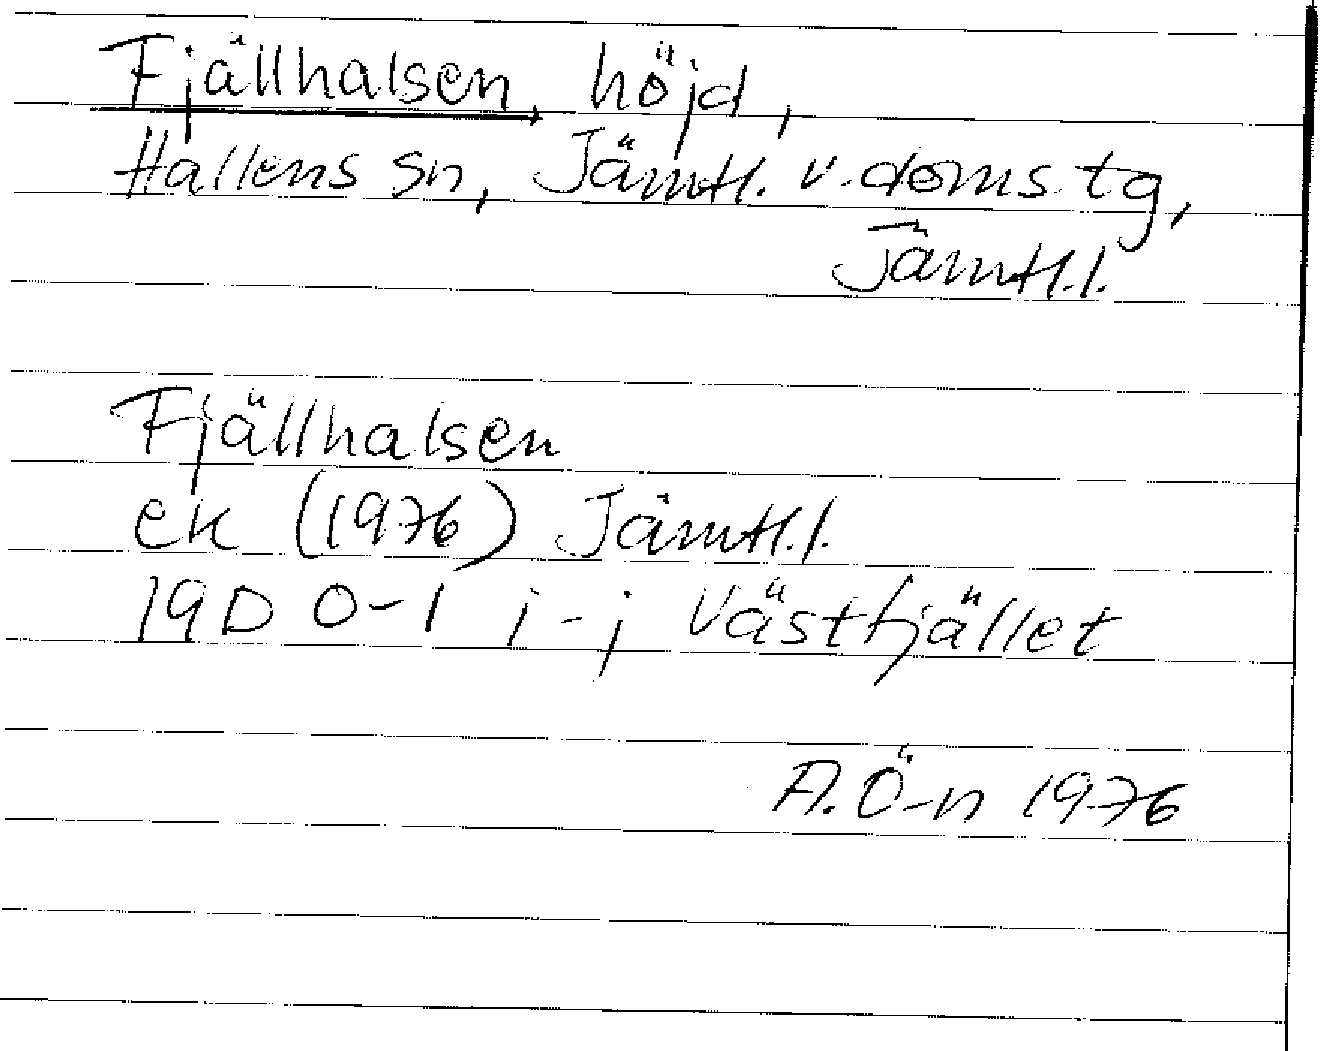 Fjällhalsen, höjd,
Hallens sn, Jämtl. v. doms. tg,
Jämtl.l.
Fjällhalsen
ek (1976) Jämtl.l.
19D 0-1 i-j Västfjället
A.Ö-n 1976